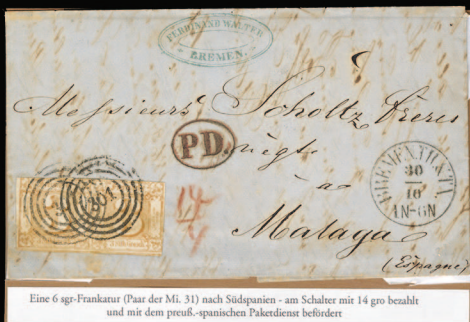 FERDINAND WALTER
BREMEN.
Messieurs Scholtz frères
P.D.
Malaga
(Espagne)
BREMEN TH.& TX.
30
10
4N-6N
301
14
Eine 6 sgr-Frankatur (Paar der Mi. 31) nach Südspanien - am Schalter mit 14 gro bezahlt
und mit dem preuß.-spanischen Paketdienst befördert